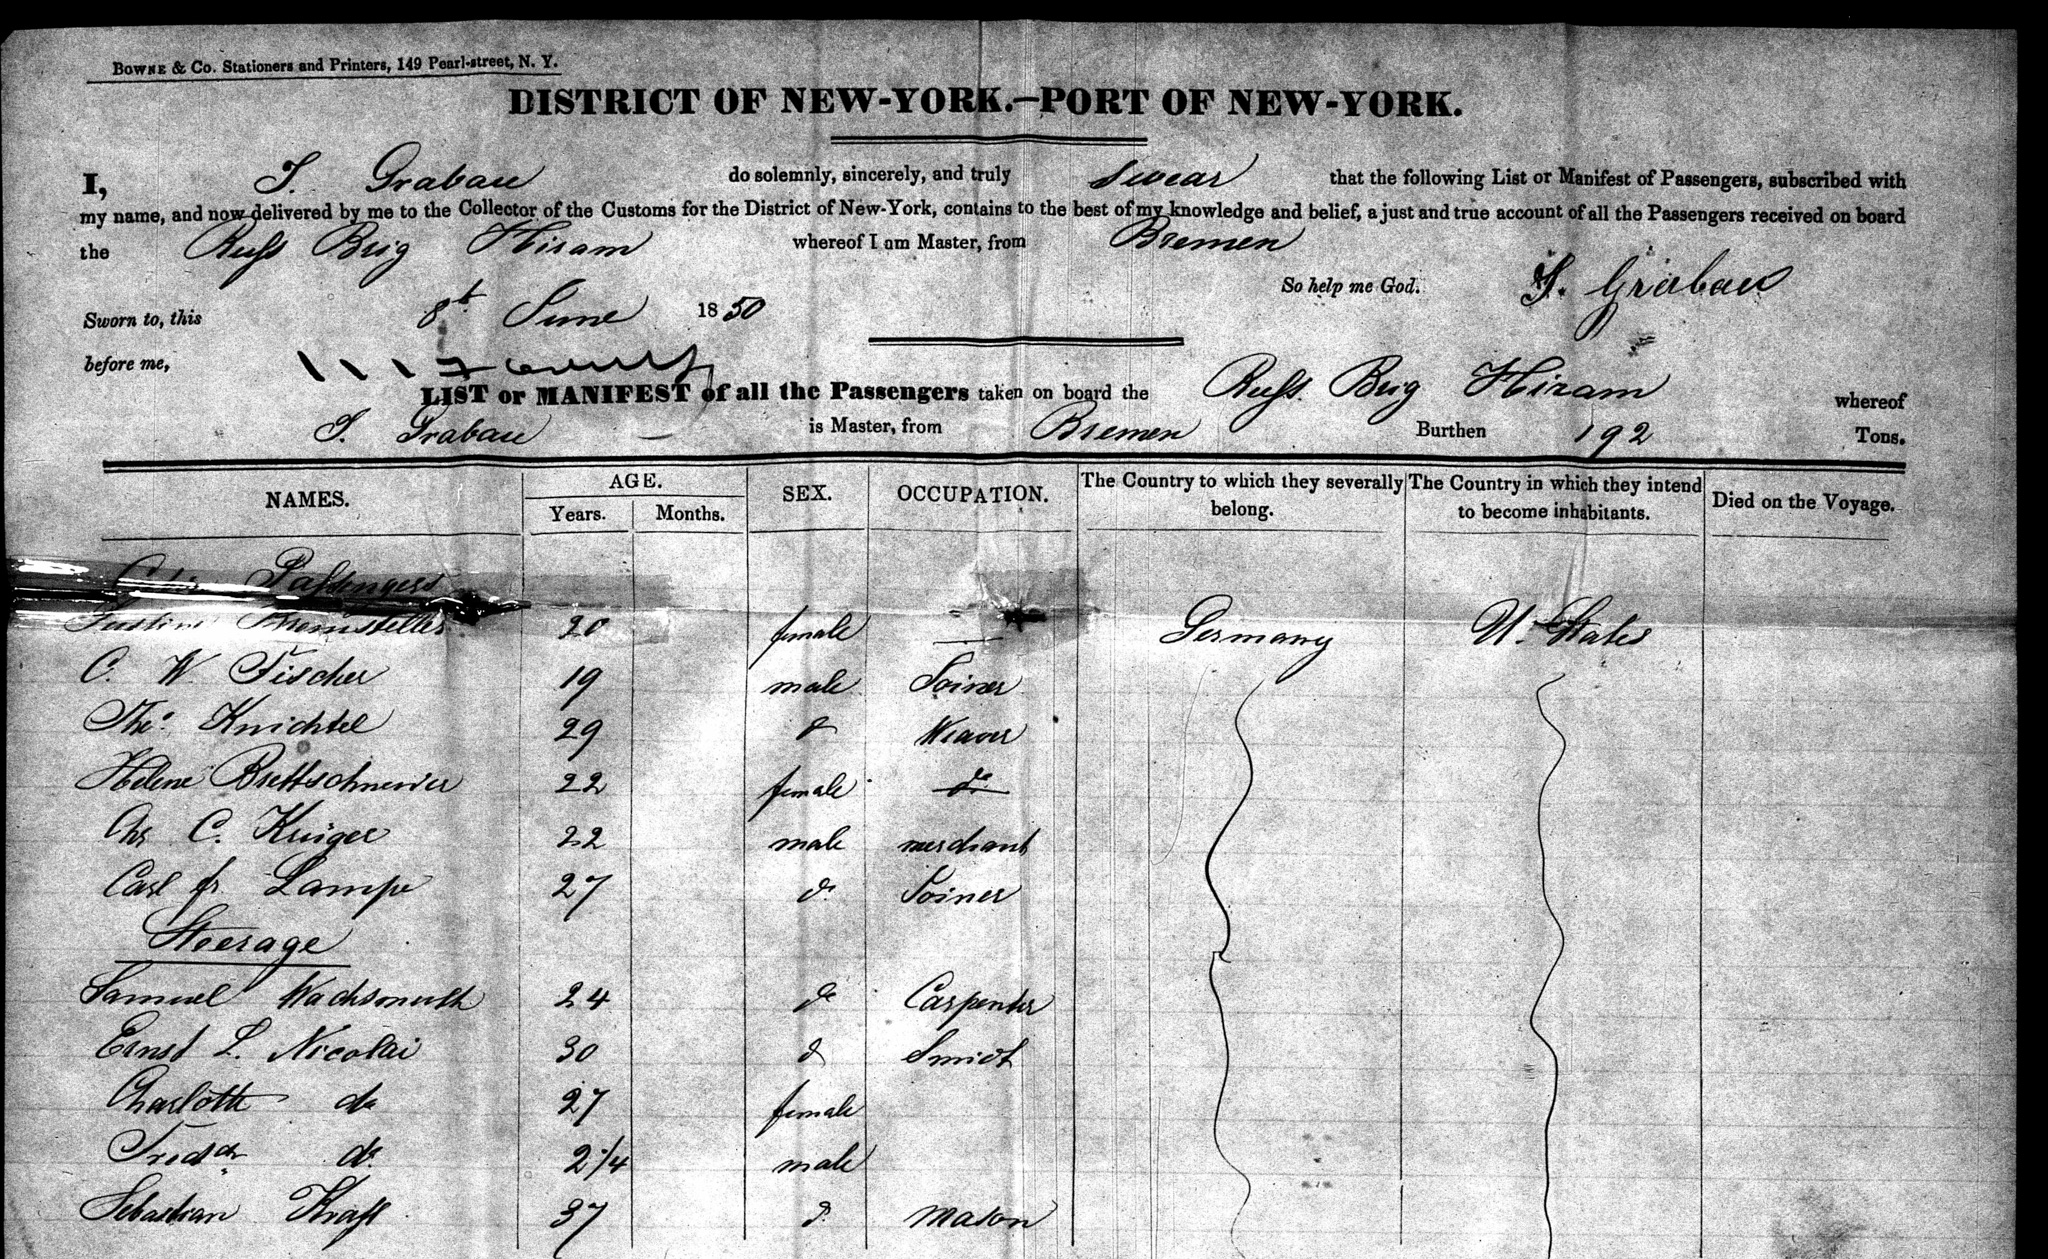 BOWNE & CO. Stationers and Printers, 149 Pearl-street, N. Y.
DISTRICT OF NEW-YORK.—PORT OF NEW-YORK.
I, J. Grabau do solemnly, sincerely, and truly swear that the following List or Manifest of Passengers, subscribed with
my name, and now delivered by me to the Collector of the Customs for the District of New-York, contains to the best of my knowledge and belief, a just and true account of all the Passengers received on board
the Russ Brig Hiram whereof I am Master, from Bremen
So help me God. J. Grabau
Sworn to, this 8t June 1850
before me,
LIST or MANIFEST of all the Passengers taken on board the Russ. Brig Hiram whereof
J. Grabau is Master, from Bremen Burthen 192 Tons.
NAMES. AGE. SEX. OCCUPATION. The Country to which they severally belong. The Country in which they intend to become inhabitants. Died on the Voyage.
Years. Months.
Passengers
20 female — Germany U. States
C. W Fischer 19 male Joiner
Tho. Knichtel 29 do Weaver
Helene Brettschneider 22 female do
Chs C. Krüger 22 male merchant
Carl fr Lampe 27 do Joiner
Steerage
Samuel Wachsmuth 24 do Carpenter
Ernst L. Nicolai 30 do Smidt
Charlotte do 27 female
Friedch do 2 1/4 male
Sebastian Kraft 37 do Mason